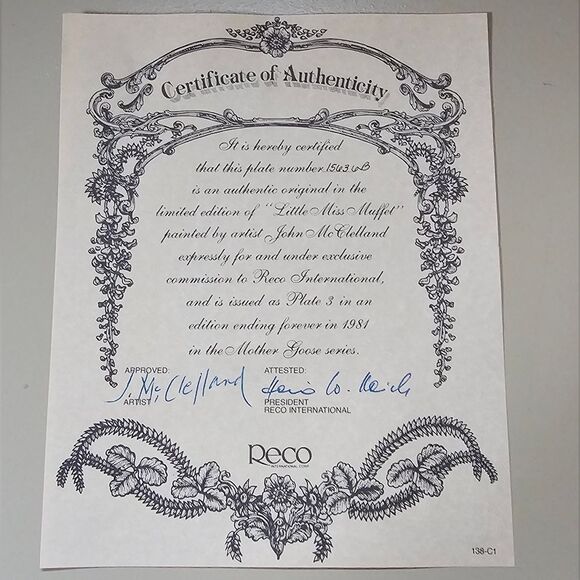 Certificate of Authenticity
It is hereby certified
that this plate number 15636B
is an authentic original in the
limited edition of "Little Miss Muffet"
painted by artist John McClelland
expressly for and under exclusive
commission to Reco International,
and is issued as Plate 3 in an
edition ending forever in 1981
in the Mother Goose series.
APPROVED:
J. McClelland
ARTIST
ATTESTED:
PRESIDENT
RECO INTERNATIONAL
Reco
INTERNATIONAL CORP.
138-C1